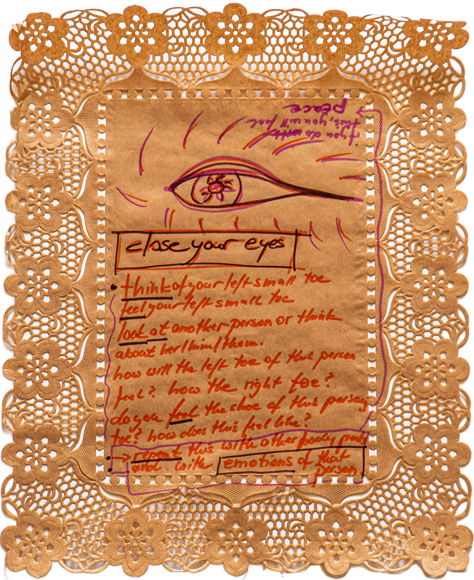 close your eyes
• think of your left small toe
feel your left small toe
look at another person or think
about her/him/them.
how will the left toe of this person
feel? how the right toe?
do you feel the shoe of this persons
toe? how does this feel like?
• → repeat this with other body parts
and with emotions of that
person.
if you do with
this, you will feel
→ peace